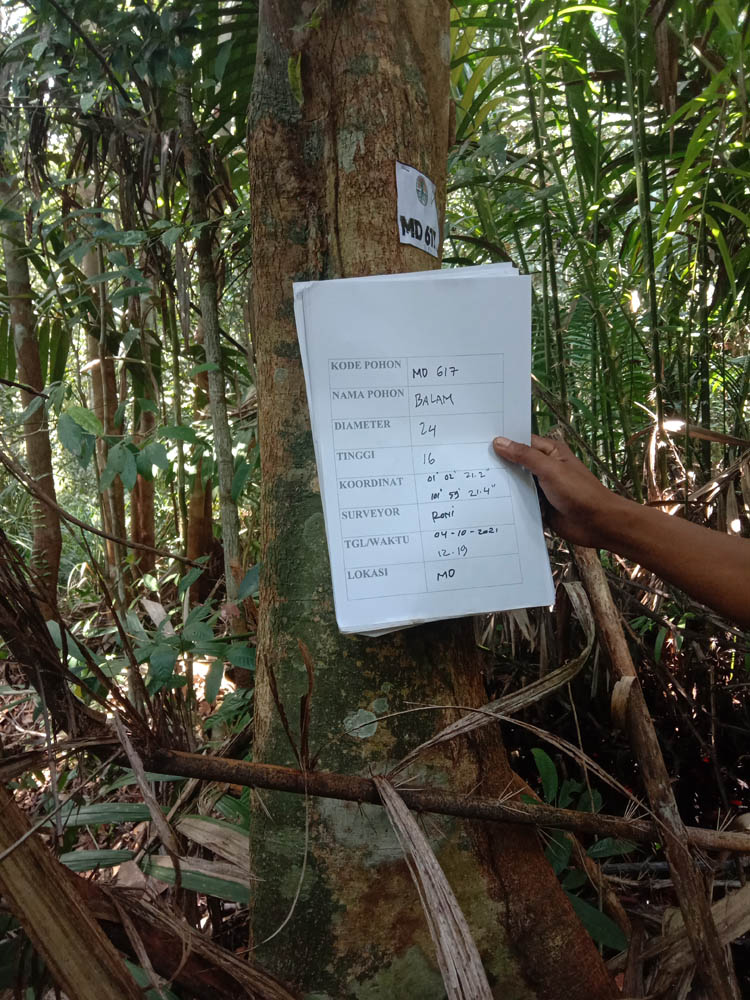 MD 617
KODE POHON MD 617
NAMA POHON BALAM
DIAMETER 24
TINGGI 16
KOORDINAT 01° 02' 21.2"
101° 59' 21.4"
SURVEYOR RONI
TGL/WAKTU 04-10-2021
12.19
LOKASI MD